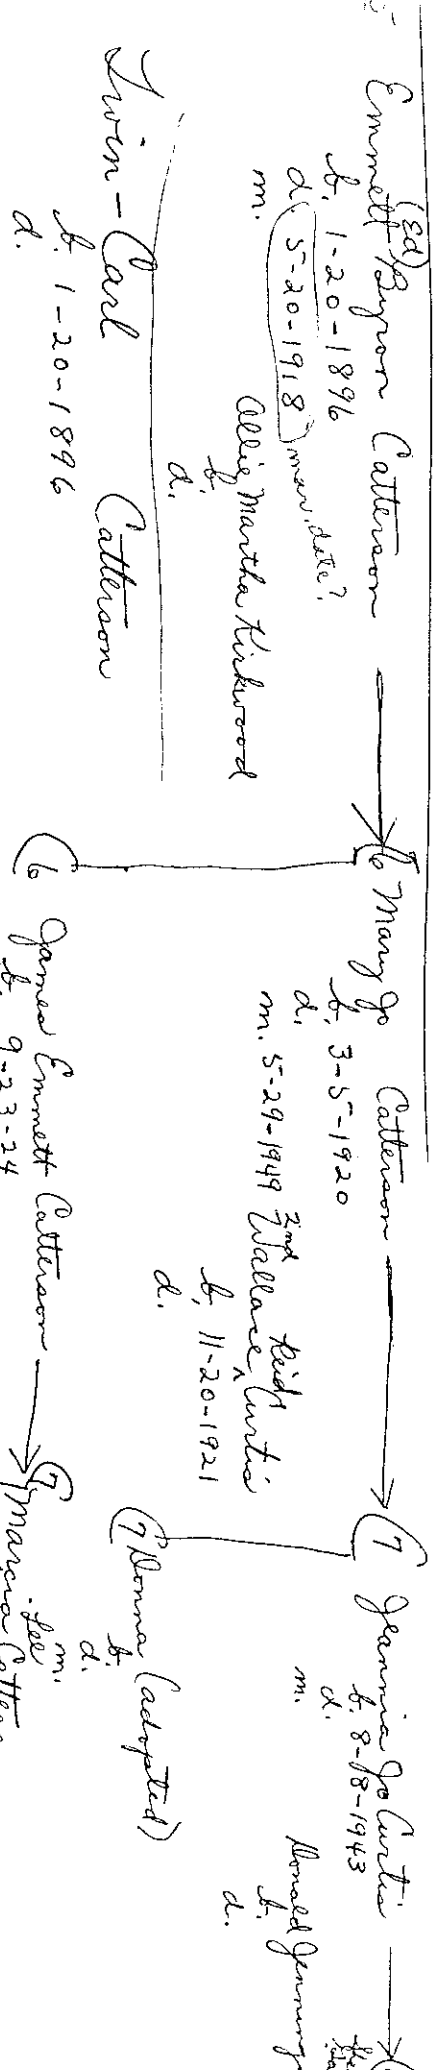 5
Emmett (Ed) Byron Catterson
b. 1-20-1896
d. 5-20-1918 mar. date?
m.
Allie Martha Kirkwood
b.
d.
Twin - Carl Catterson
b. 1-20-1896
d.
6 Mary Jo Catterson
b. 3-5-1920
d.
m. 5-29-1949 2nd Wallace Reid Curtis
b. 11-20-1921
d.
6 James Emmett Catterson
b. 9-23-24
7 Jeannia Jo Curtis
b. 8-18-1943
d.
m.
Donald Jennings
b.
d.
7 Donna (adopted)
b.
d.
m.
7 Marcia Lee